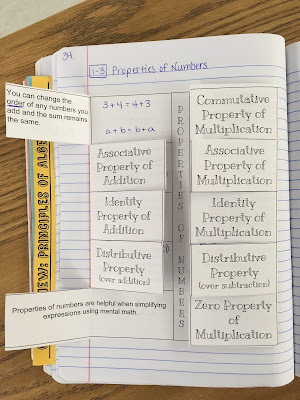 34
1-3 Properties of Numbers
You can change the
order of any numbers you
add and the sum remains
the same.
3+4=4+3
a+b=b+a
Associative
Property of
Addition
Identity
Property of
Addition
Distributive
Property
(over addition)
Properties of numbers are helpful when simplifying
expressions using mental math.
PROPERTIES OF NUMBERS
Commutative
Property of
Multiplication
Associative
Property of
Multiplication
Identity
Property of
Multiplication
Distributive
Property
(over subtraction)
Zero Property
of
Multiplication
PRINCIPLES OF